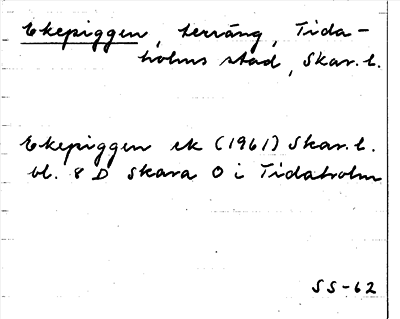 Ekepiggen, terräng, Tida-
holms stad, Skar. l.
Ekepiggen ek (1961) Skar. l.
bl. 8 D Skara O i Tidaholm
SS-62